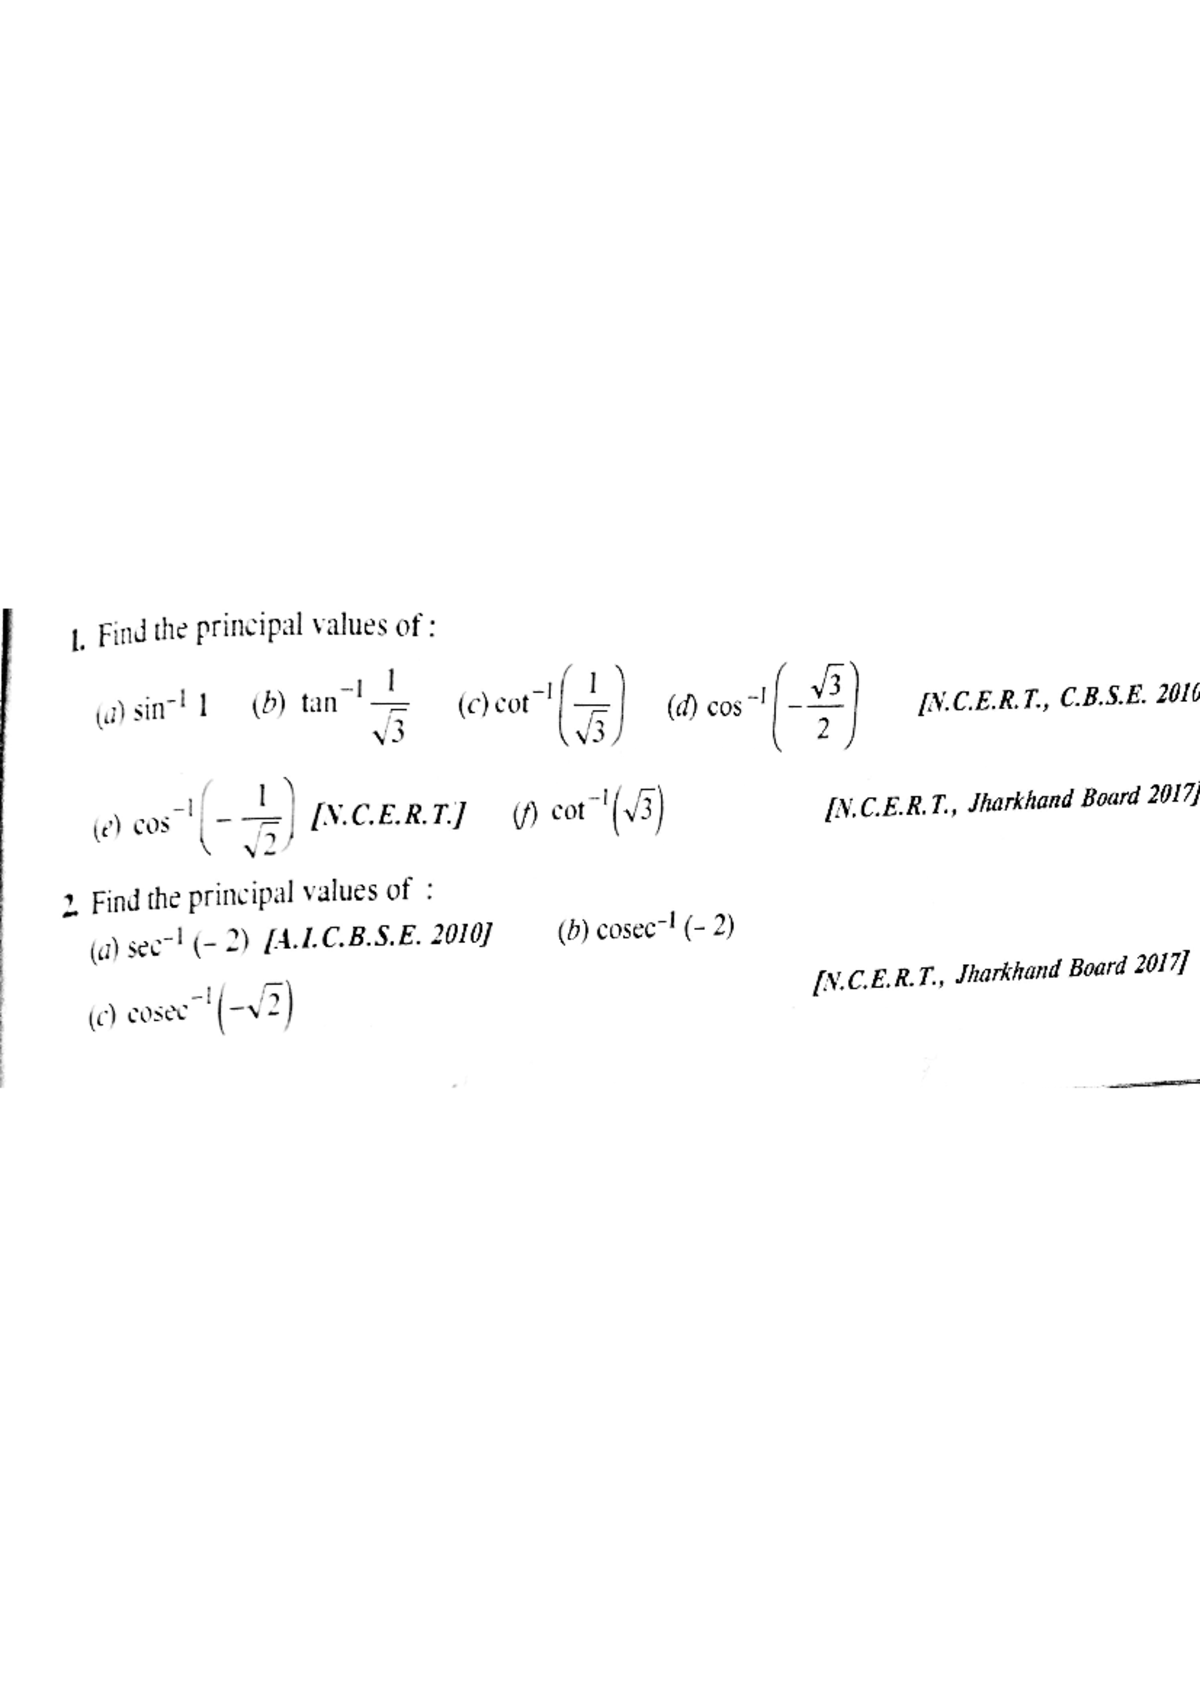 1. Find the principal values of :
(a) sin⁻¹ 1 (b) tan⁻¹ 1/√3 (c) cot⁻¹(1/√3) (d) cos⁻¹(−√3/2) [N.C.E.R.T., C.B.S.E. 2010
(e) cos⁻¹(−1/√2) [N.C.E.R.T.] (f) cot⁻¹(√3) [N.C.E.R.T., Jharkhand Board 2017]
2. Find the principal values of :
(a) sec⁻¹ (– 2) [A.I.C.B.S.E. 2010] (b) cosec⁻¹ (– 2)
(c) cosec⁻¹(−√2) [N.C.E.R.T., Jharkhand Board 2017]